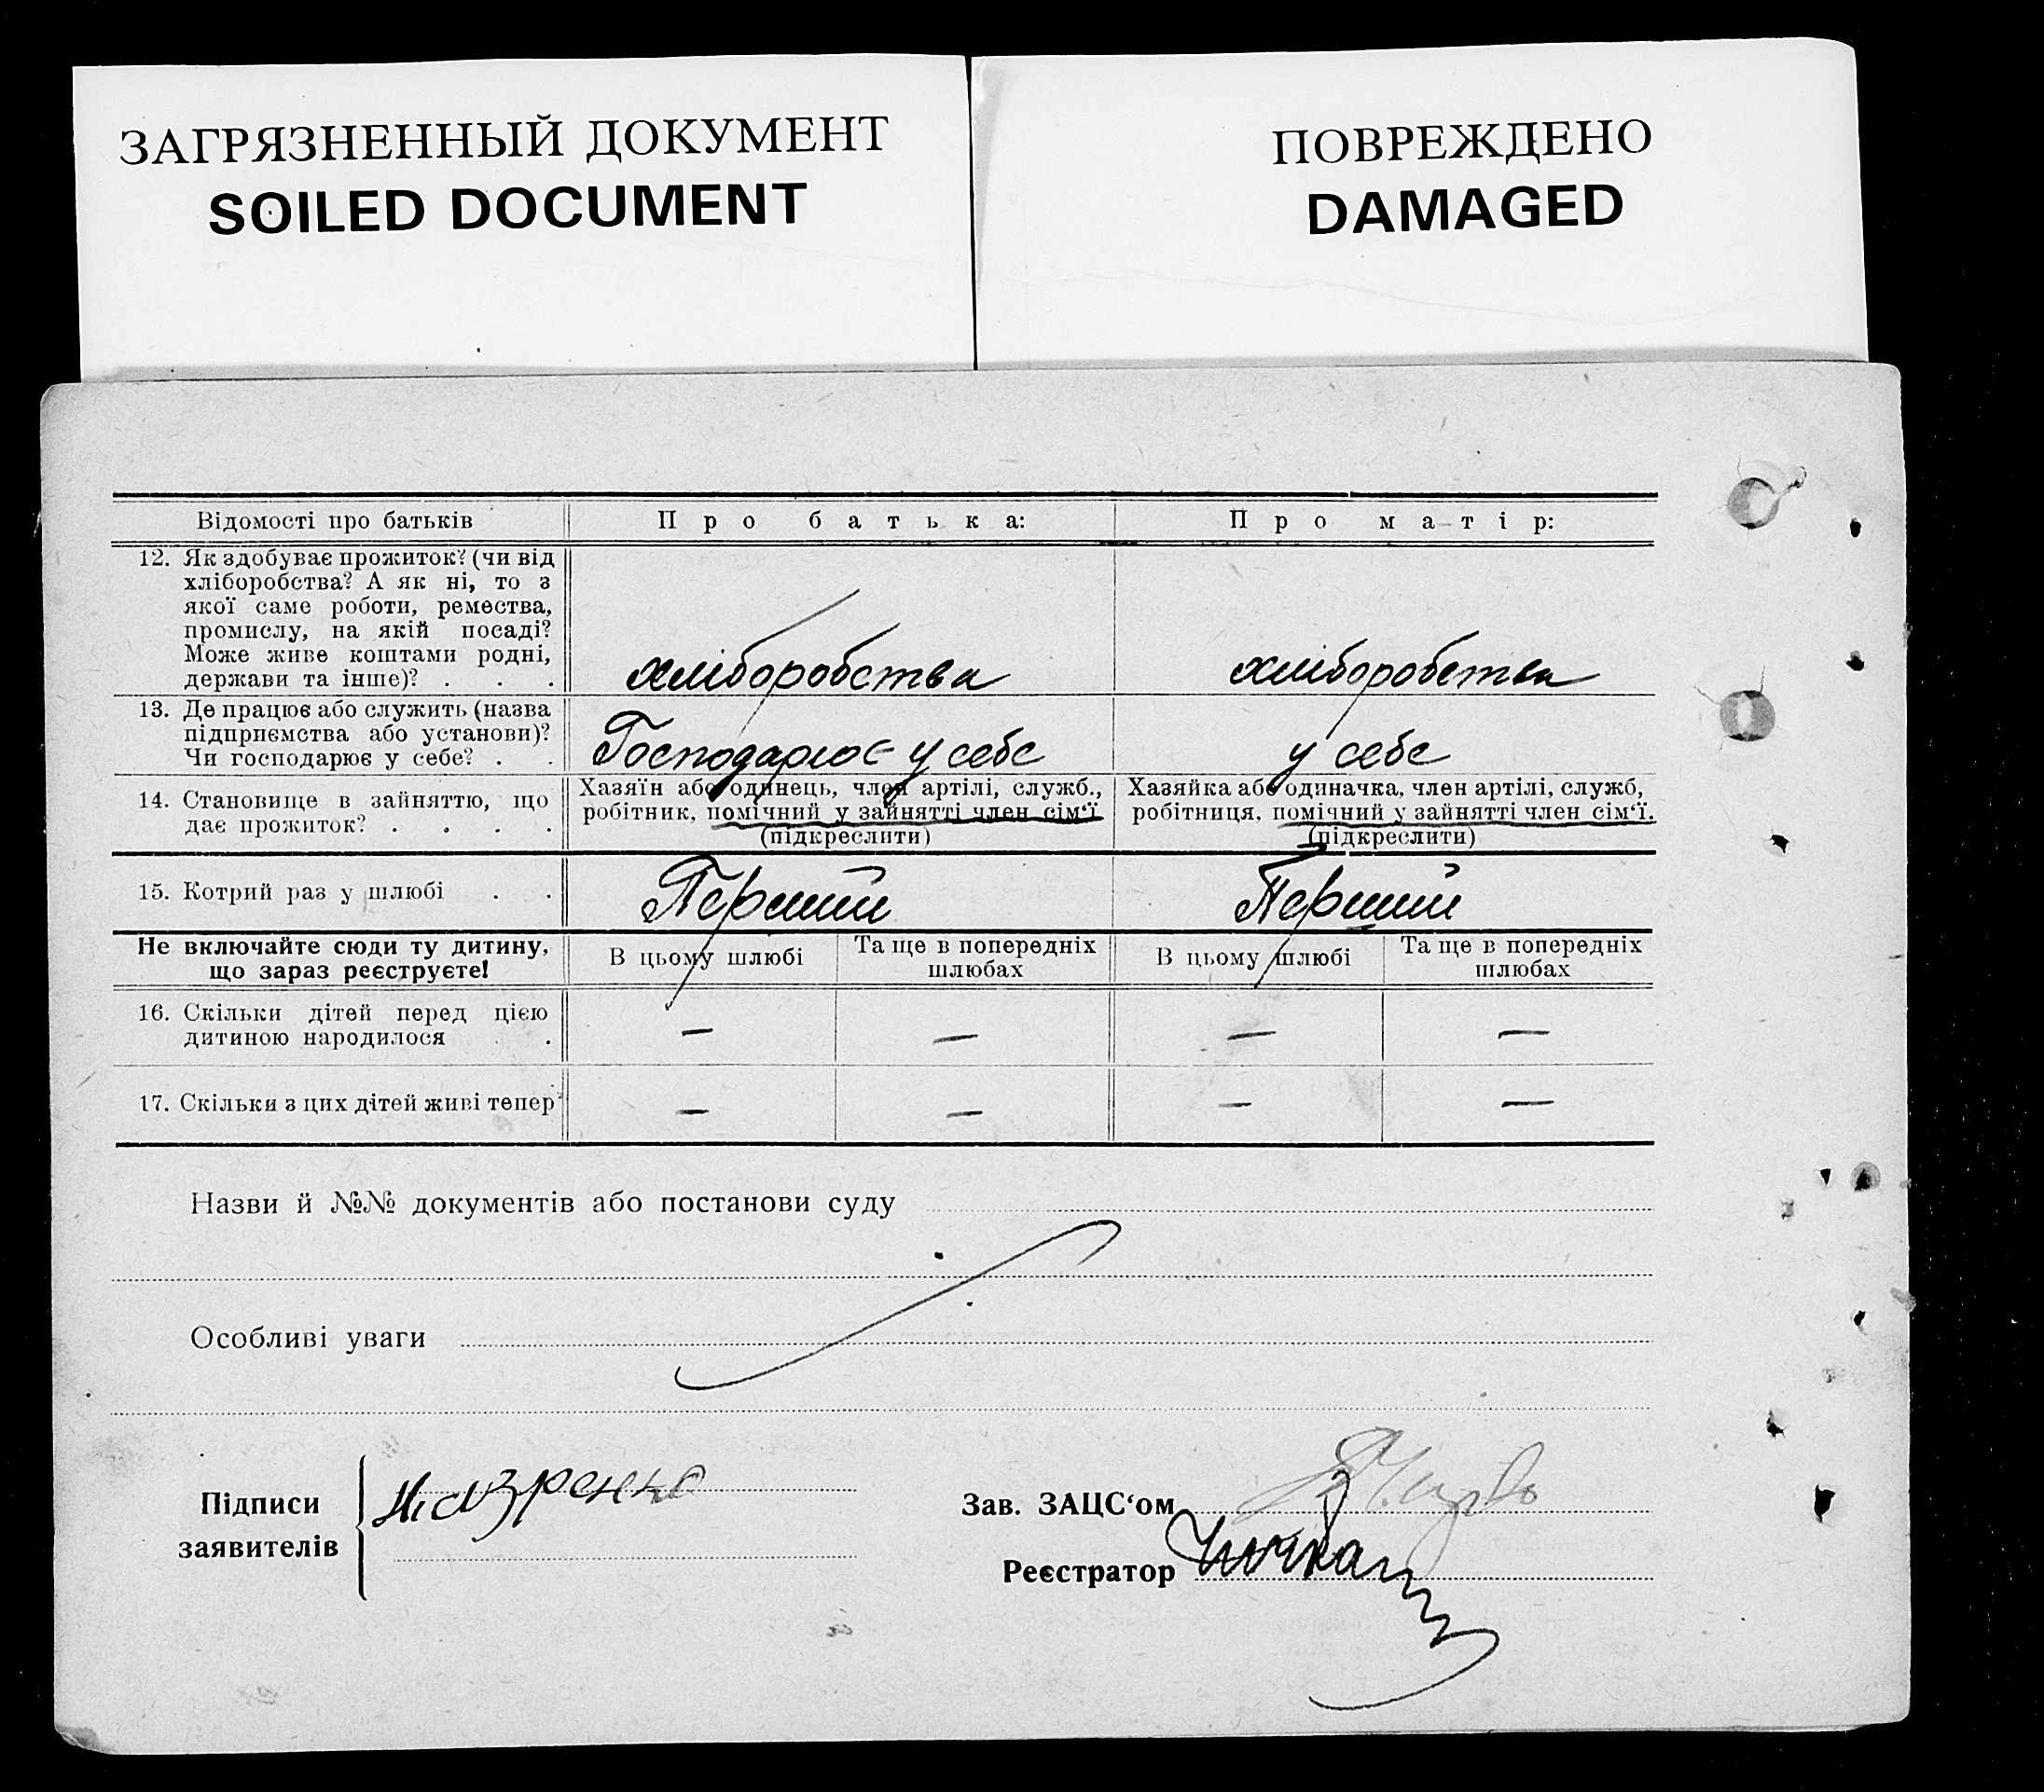 ЗАГРЯЗНЕННЫЙ ДОКУМЕНТ
SOILED DOCUMENT
ПОВРЕЖДЕНО
DAMAGED
Відомості про батьків
Про батька:
Про матір:
12. Як здобуває прожиток? (чи від
хліборобства? А як ні, то з
якої саме роботи, ремества,
промислу, на якій посаді?
Може живе коштами родні,
держави та інше)? . . .
хліборобства
хліборобства
13. Де працює або служить (назва
підприємства або установи)?
Чи господарює у себе? . .
Господарює у себе
у себе
14. Становище в зайняттю, що
дає прожиток? . . . .
Хазяїн або одинець, член артілі, служб.,
робітник, помічний у зайнятті член сім‘ї
(підкреслити)
Хазяйка або одиначка, член артілі, служб,
робітниця, помічний у зайнятті член сім‘ї.
(підкреслити)
15. Котрий раз у шлюбі . .
Перший
Перший
Не включайте сюди ту дитину,
що зараз реєструєте!
В цьому шлюбі
Та ще в попередніх
шлюбах
В цьому шлюбі
Та ще в попередніх
шлюбах
16. Скільки дітей перед цією
дитиною народилося .
— — — —
17. Скільки з цих дітей живі тепер
— — — —
Назви й №№ документів або постанови суду
Особливі уваги
Підписи
заявителів
Зав. ЗАЦС‘ом
Реєстратор